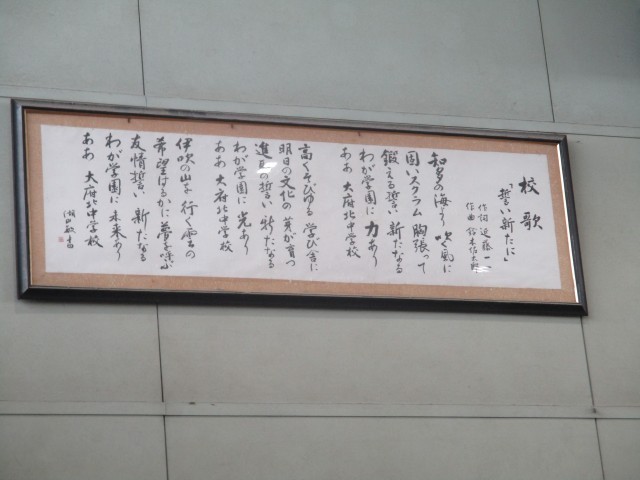 校歌
「誓い新たに」
作詞 近藤一
作曲 鈴木佐太郎
知多の海より 吹く風に
固いスクラム 胸張って
鍛える誓い 新たなる
わが学園に 力あり
ああ 大府北中学校
高くそびゆる 学び舎に
明日の文化の 芽が育つ
進取の誓い 新たなる
わが学園に 光あり
ああ 大府北中学校
伊吹の山を 行く雲の
希望はるかに 夢を呼ぶ
友情誓い 新たなる
わが学園に 未来あり
ああ 大府北中学校